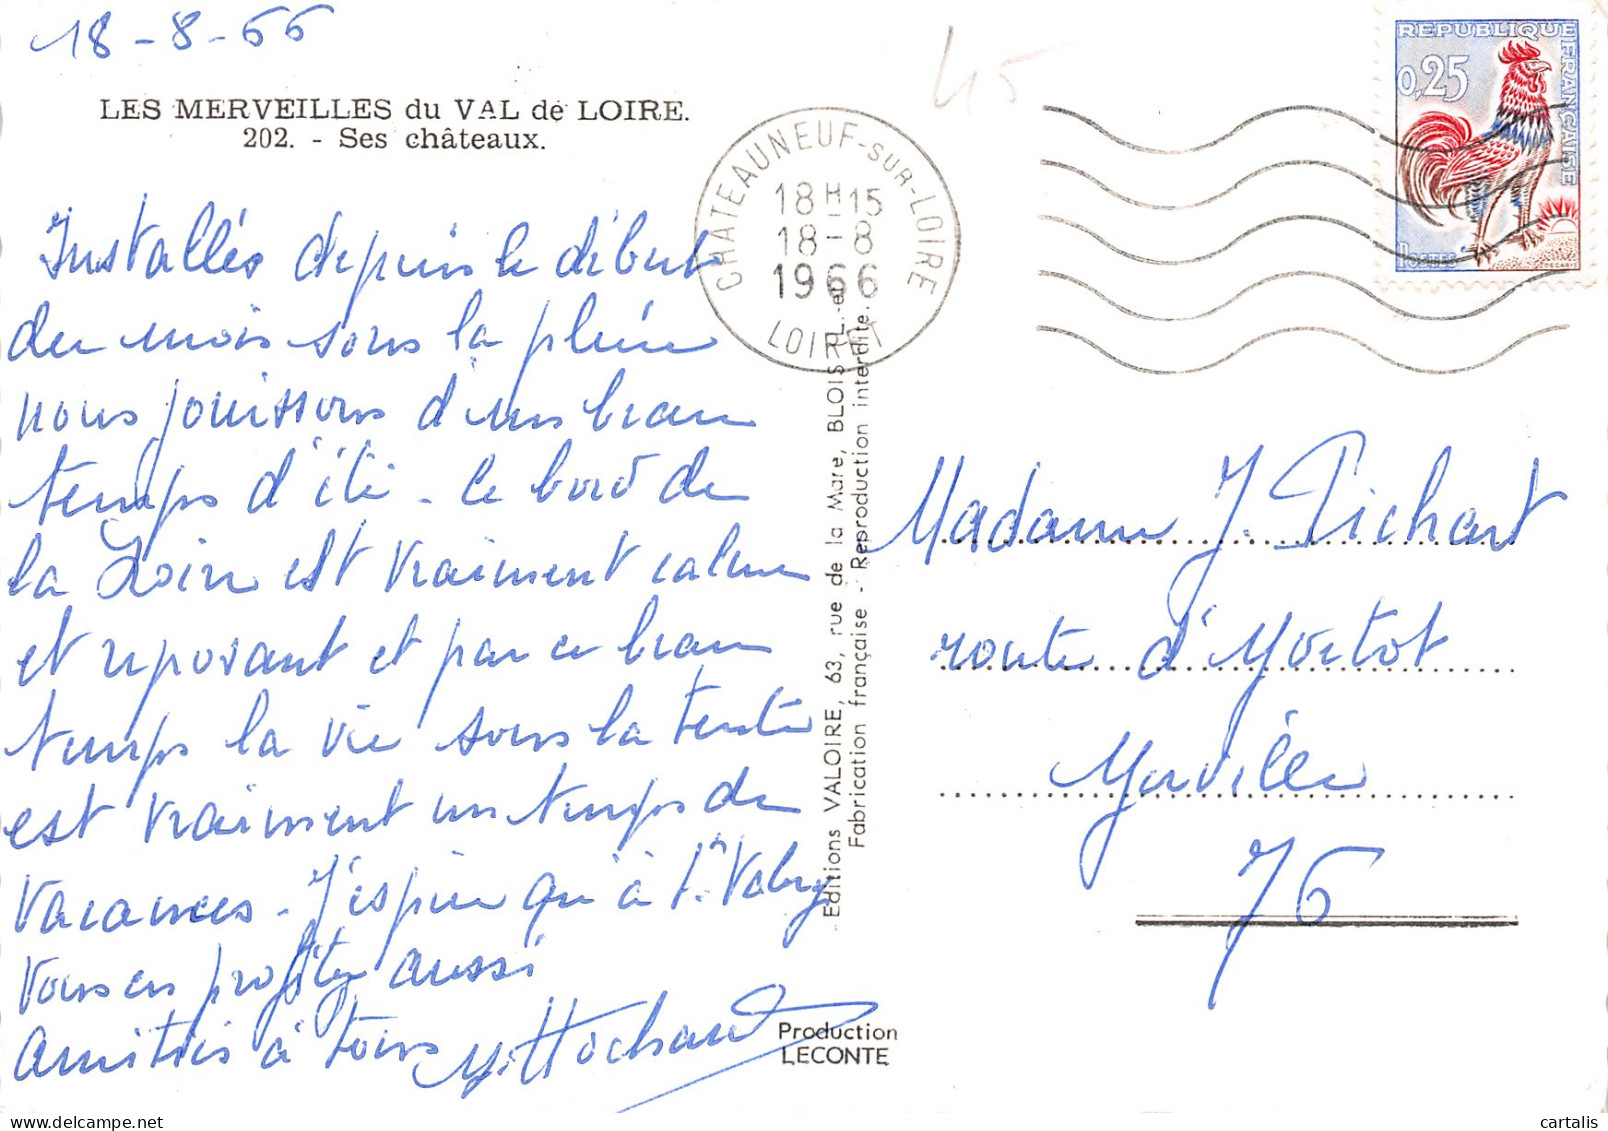 18-8-66
LES MERVEILLES du VAL de LOIRE.
202. - Ses châteaux.
Installés depuis le début
du mois sous la pluie
nous jouissons d'un beau
temps d'été - Le bord de
la Loire est vraiment calme
et reposant et par ce beau
temps la vie sous la tente
est vraiment un temps de
vacances - J'espère qu'à St Valery
vous en profitez aussi
Amitiés à tous
CHATEAUNEUF-SUR-LOIRE
18H15
18-8
1966
LOIRET
45
REPUBLIQUE FRANÇAISE
0,25
POSTES
DECARIS
Editions VALOIRE, 63, rue de la Mare, BLOIS, L.-et-
Fabrication française - Reproduction interdite.
Madame J. Pichart
route d'Yvetot
Yerville
76
Production
LECONTE
cartalis